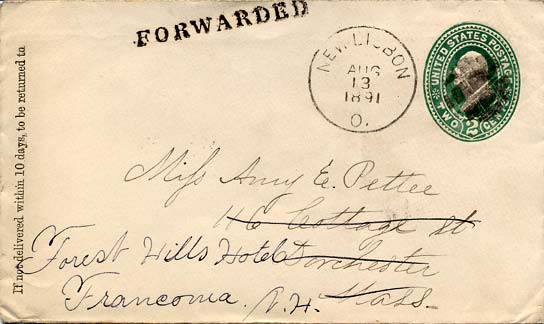 FORWARDED
NEW LISBON
AUG
13
1891
O.
UNITED STATES POSTAGE
TWO 2 CENTS
If not delivered within 10 days, to be returned to
Miss Amy E. Pettee
116 Cottage St
Dorchester
Mass.
Forest Hills Hotel
Franconia. N.H.